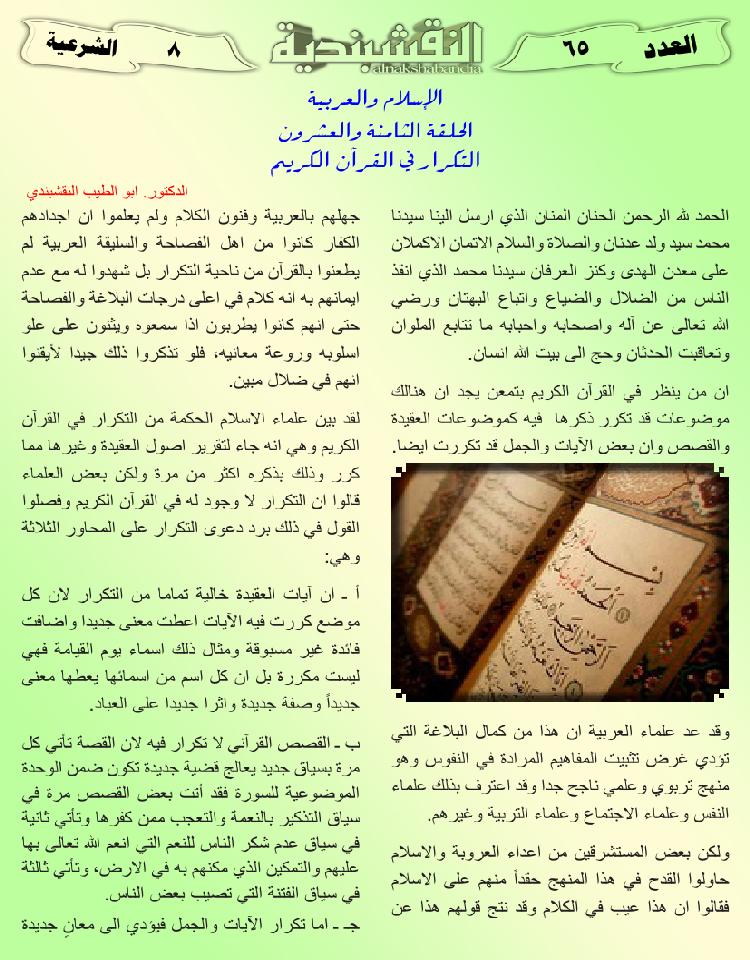 العدد
٦٥
النقشبندية
alnakshabandia
٨
الشرعية
الإسلام والعربية
الحلقة الثامنة والعشرون
التكرار في القرآن الكريم
الدكتور. ابو الطيب النقشبندي
الحمد لله الرحمن الحنان المنان الذي ارسل الينا سيدنا
محمد سيد ولد عدنان والصلاة والسلام الاتمان الاكملان
على معدن الهدى وكنز العرفان سيدنا محمد الذي انقذ
الناس من الضلال والضياع واتباع البهتان ورضي
الله تعالى عن آله واصحابه واحبابه ما تتابع الملوان
وتعاقبت الحدثان وحج الى بيت الله انسان.
ان من ينظر في القرآن الكريم بتمعن يجد ان هنالك
موضوعات قد تكرر ذكرها فيه كموضوعات العقيدة
والقصص وان بعض الآيات والجمل قد تكررت ايضا.
وقد عد علماء العربية ان هذا من كمال البلاغة التي
تؤدي غرض تثبيت المفاهيم المرادة في النفوس وهو
منهج تربوي وعلمي ناجح جدا وقد اعترف بذلك علماء
النفس وعلماء الاجتماع وعلماء التربية وغيرهم.
ولكن بعض المستشرقين من اعداء العروبة والاسلام
حاولوا القدح في هذا المنهج حقداً منهم على الاسلام
فقالوا ان هذا عيب في الكلام وقد نتج قولهم هذا عن
جهلهم بالعربية وفنون الكلام ولم يعلموا ان اجدادهم
الكفار كانوا من اهل الفصاحة والسليقة العربية لم
يطعنوا بالقرآن من ناحية التكرار بل شهدوا له مع عدم
ايمانهم به انه كلام في اعلى درجات البلاغة والفصاحة
حتى انهم كانوا يطربون اذا سمعوه ويثنون على علو
اسلوبه وروعة معانيه، فلو تذكروا ذلك جيدا لأيقنوا
انهم في ضلال مبين.
لقد بين علماء الاسلام الحكمة من التكرار في القرآن
الكريم وهي انه جاء لتقرير اصول العقيدة وغيرها مما
كرر وذلك بذكره اكثر من مرة ولكن بعض العلماء
قالوا ان التكرار لا وجود له في القرآن الكريم وفصلوا
القول في ذلك برد دعوى التكرار على المحاور الثلاثة
وهي:
أ ـ ان آيات العقيدة خالية تماما من التكرار لان كل
موضع كررت فيه الآيات اعطت معنى جديدا واضافت
فائدة غير مسبوقة ومثال ذلك اسماء يوم القيامة فهي
ليست مكررة بل ان كل اسم من اسمائها يعطها معنى
جديداً وصفة جديدة واثرا جديدا على العباد.
ب ـ القصص القرآني لا تكرار فيه لان القصة تأتي كل
مرة بسياق جديد يعالج قضية جديدة تكون ضمن الوحدة
الموضوعية للسورة فقد أتت بعض القصص مرة في
سياق التذكير بالنعمة والتعجب ممن كفرها وتأتي ثانية
في سياق عدم شكر الناس للنعم التي انعم الله تعالى بها
عليهم والتمكين الذي مكنهم به في الارض، وتأتي ثالثة
في سياق الفتنة التي تصيب بعض الناس.
جـ ـ اما تكرار الآيات والجمل فيؤدي الى معانٍ جديدة